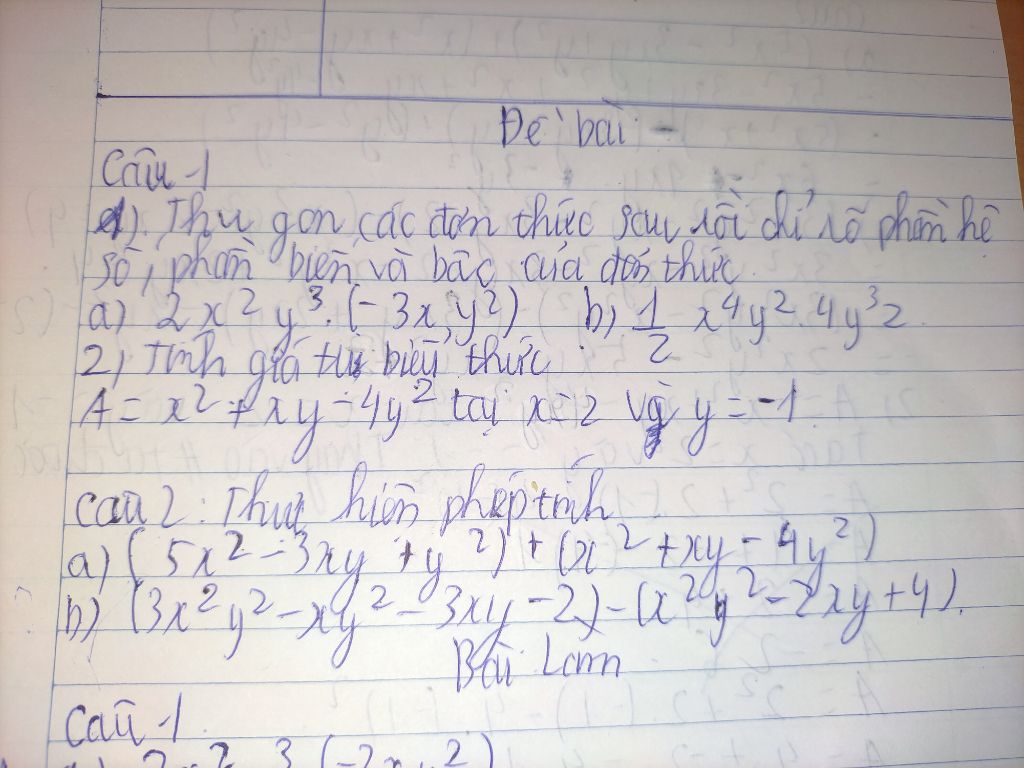 Đề bài
Câu 1
1). Thu gọn các đơn thức sau rồi chỉ rõ phần hệ
số, phần biến và bậc của đơn thức
a) 2x² y³. (-3x, y²) b) 1/2 x⁴y². 4y³z
2) Tính giá trị biểu thức
A = x² + xy - 4y² tại x = 2 và y = -1
Câu 2: Thực hiện phép tính
a) (5x² - 3xy + y²) + (x² + xy - 4y²)
b) (3x²y² - xy² - 3xy - 2) - (x²y² - 2xy + 4).
Bài Làm
Câu 1.